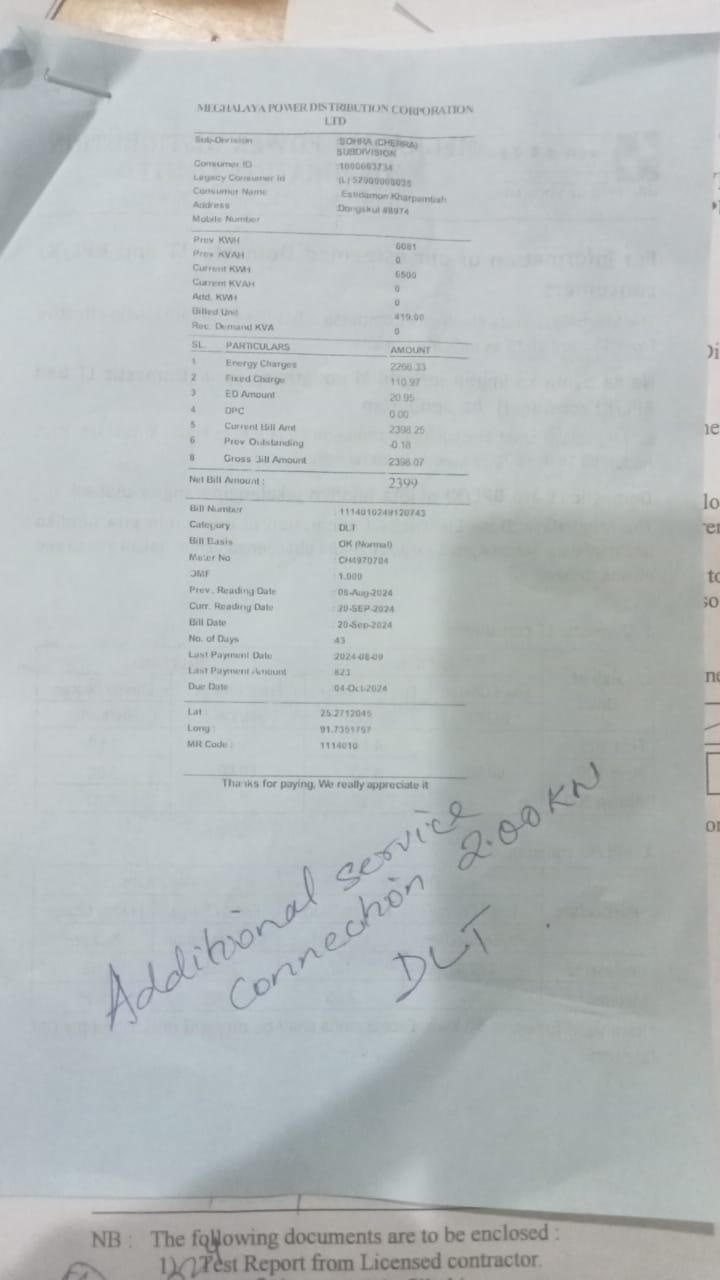 MEGHALAYA POWER DISTRIBUTION CORPORATION
LTD
Sub-Division :SOHRA (CHERRA)
SUBDIVISION
Consumer ID :1000663734
Legacy Consumer Id :(L) 52900000035
Consumer Name : Estidamon Kharpamtiah
Address :Dongskul #8974
Mobile Number
Prev KWH 6081
Prev KVAH 0
Current KWH 6500
Current KVAH 0
Add. KWH 0
Billed Unit 419.00
Rec. Demand KVA 0
SL. PARTICULARS AMOUNT
1 Energy Charges 2266.33
2 Fixed Charge 110.97
3 ED Amount 20.95
4 DPC 0.00
5 Current Bill Amt 2398.25
6 Prev Outstanding -0.18
8 Gross Bill Amount 2398.07
Net Bill Amount : 2399
Bill Number : 1114010249120743
Category : DLT
Bill Basis : OK (Normal)
Meter No : CH4970704
OMF : 1.000
Prev. Reading Date : 08-Aug-2024
Curr. Reading Date : 20-SEP-2024
Bill Date : 20-Sep-2024
No. of Days :43
Last Payment Date : 2024-08-09
Last Payment Amount : 823
Due Date : 04-Oct-2024
Lat : 25.2712045
Long : 91.7351757
MR Code : 1114010
Thanks for paying, We really appreciate it
Additional service
connection 2.00KN
DLT .
NB : The following documents are to be enclosed :
1) Test Report from Licensed contractor.